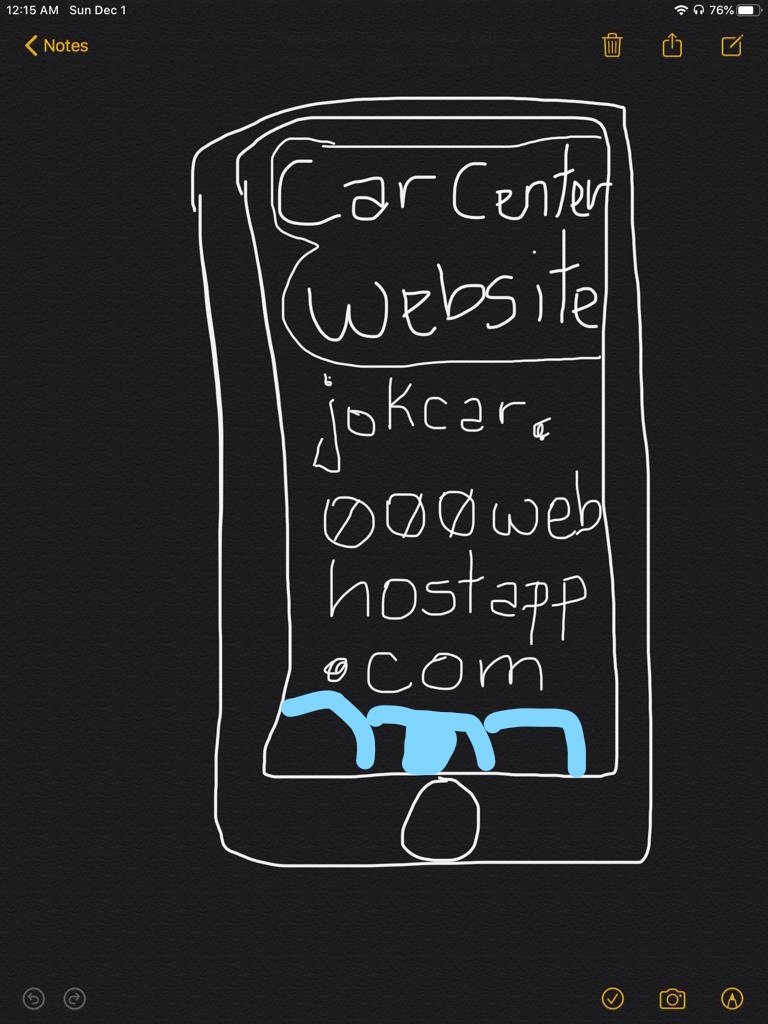 12:15 AM Sun Dec 1 76%
Notes
Car Center
Website
jokcar.
000web
hostapp
.com